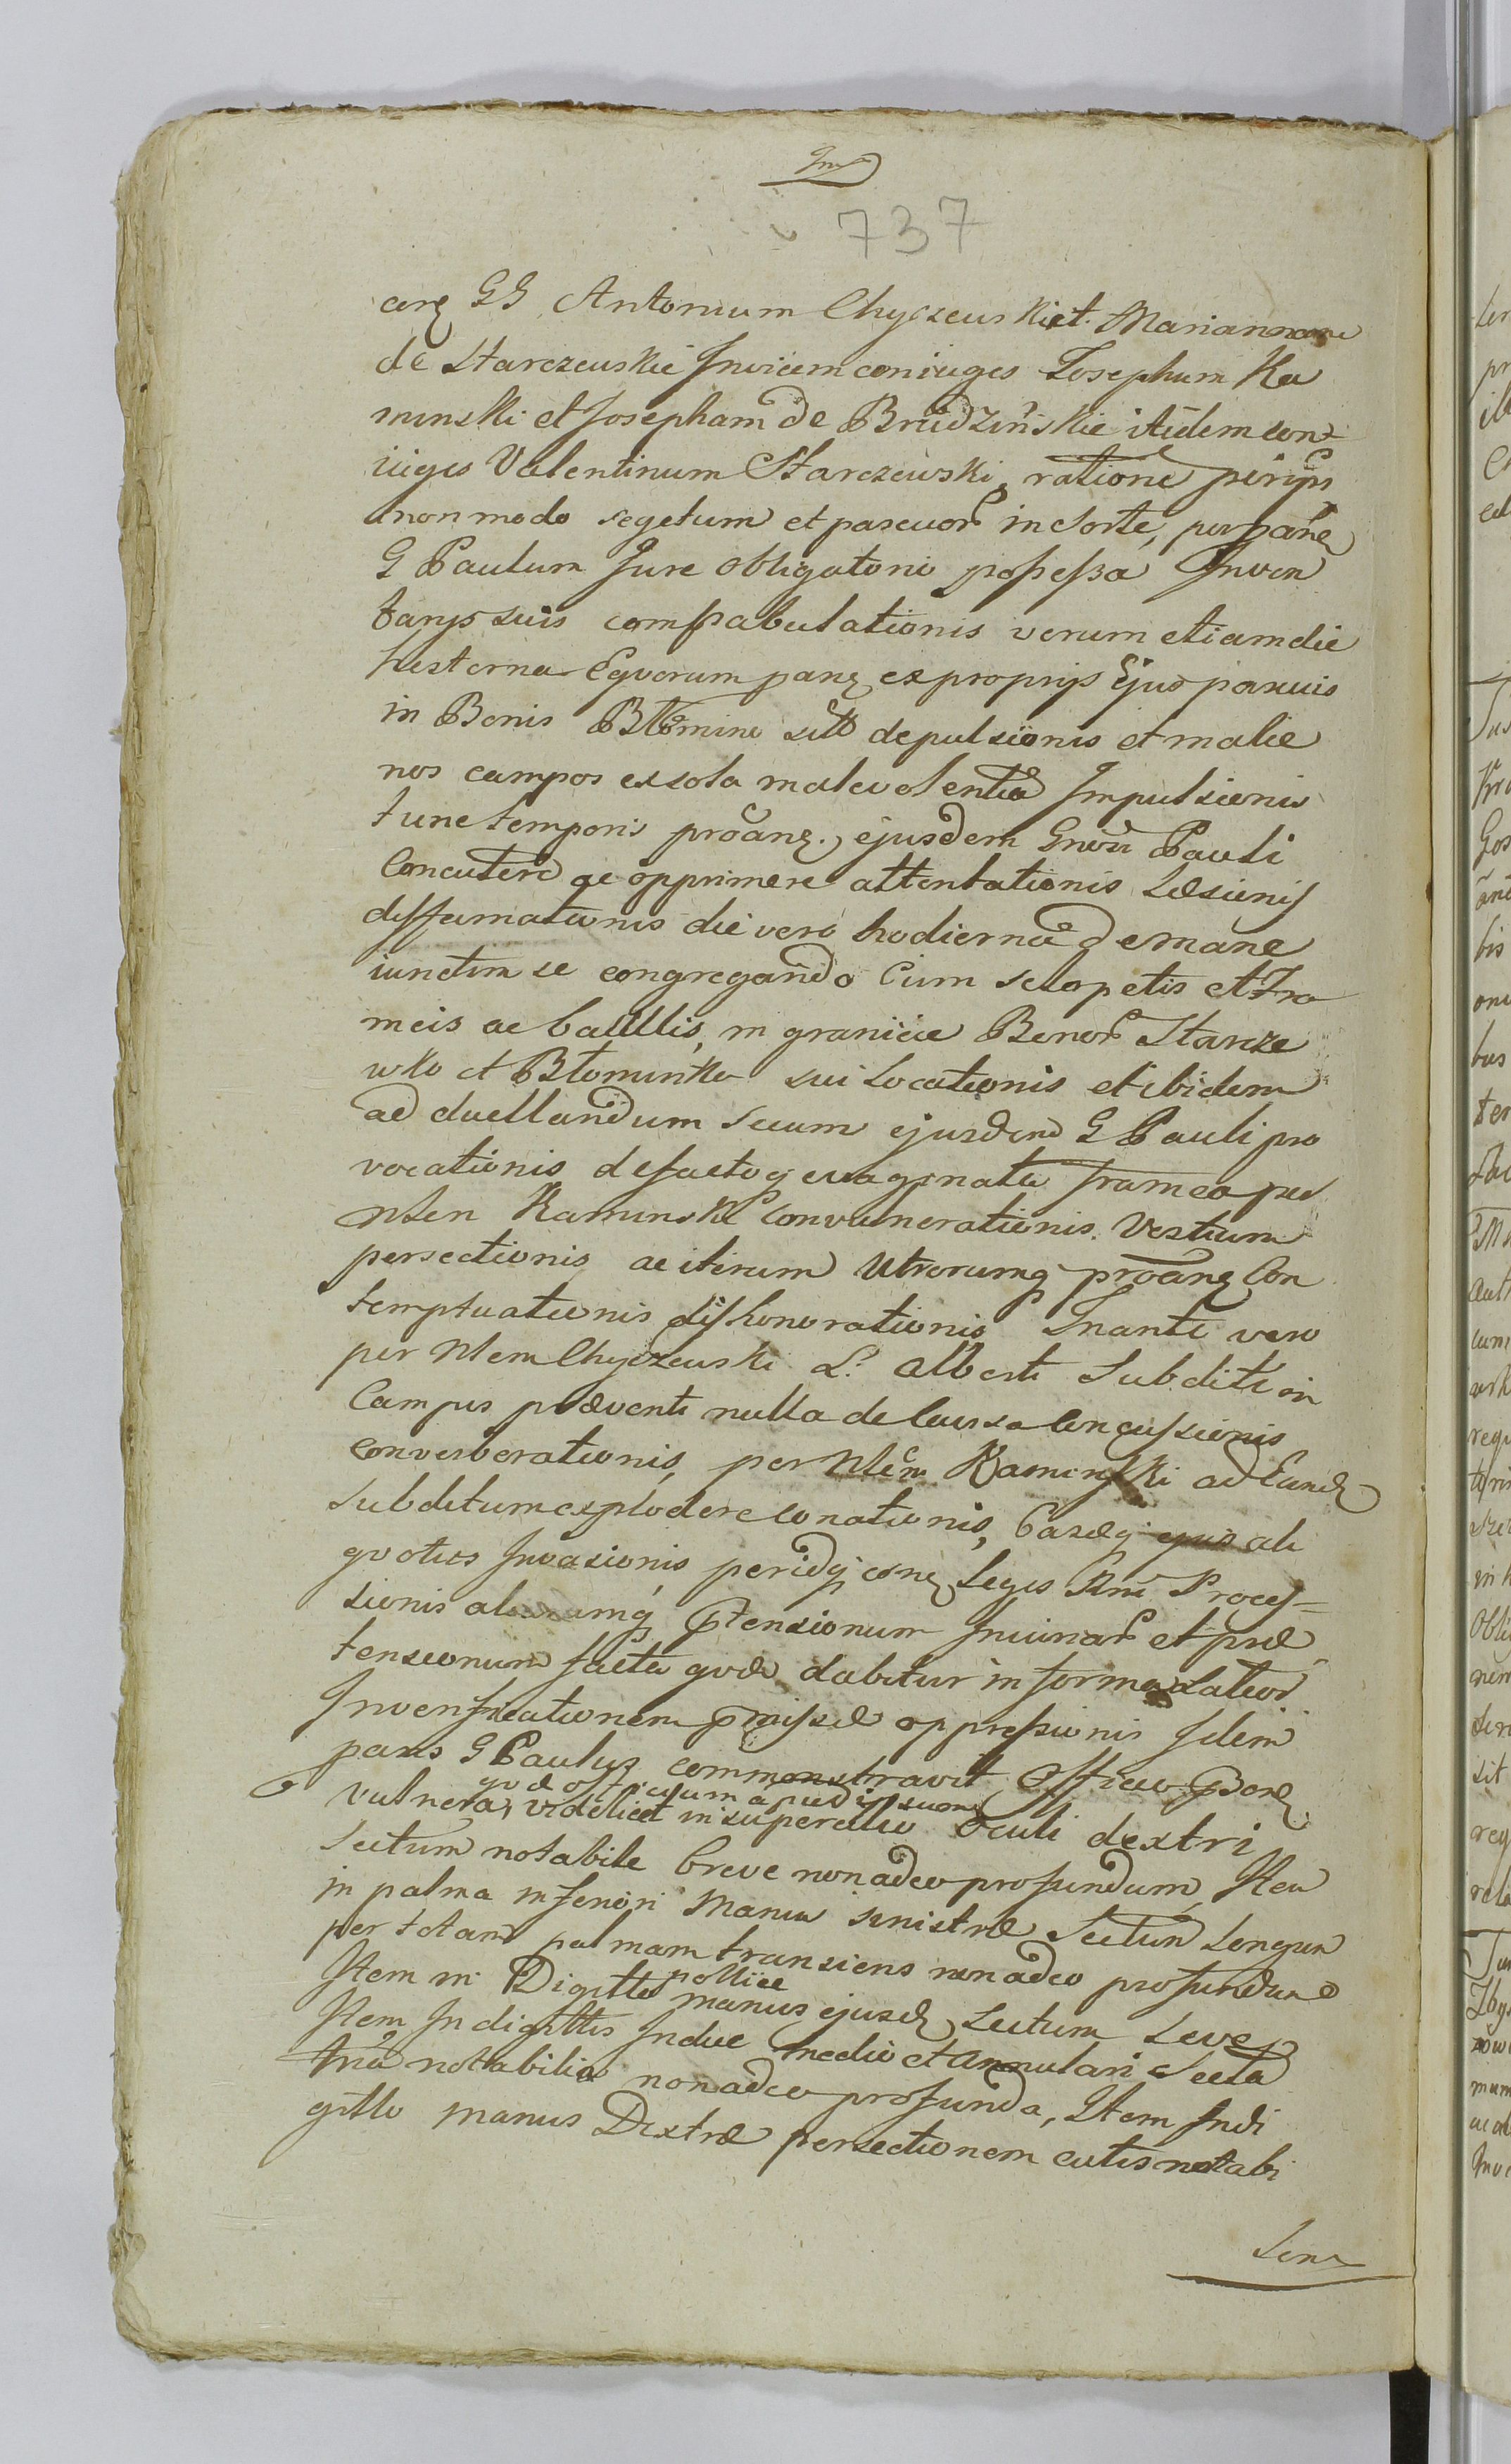 737
arg GG Antonium Chyczewski et Mariannam
de Starczewskie Invicem coniuges Josephum Ka
minski et Josepham de Brudzińskie itidem con=
iuges Valentinum Starczewski, ratione
non modo segetum et pascuor in Sorte, per
G Paulum Jure obligatorio possessa Inven
tarys suis compabulationis verum etiam die
hesterna Eqvorum ex proprijs Ejus pascuis
in Bonis Błomino depulsionis et in alie
nos campos ex sola malevolentia Impulsionis
tunc temporis proang. ejusdem Gnosi Pauli
Concutere ac opprimere attentationis Læsionis
diffamationis die vero hodierna de mane
iunctim se congregando Cum Sclopetis et Fra
meis ac bacullis, in granicie Bonor Starcze
wko et Błominko sui locationis et ibidem
ad duellandum secum ejusdem G Pauli pro
vocationis de factoq evaginata framea per
Nlem Kaminski convulnerationis. Vestium
persectionis ac iterum Utrorumq proang Con
temptuationis dishonorationis Inanti vero
per Nlem Chyczewski L. Alberti Subditi in
Campis præventi nulla de Causa Concussionis
Converberationis, per Nlem Kaminski ad Eund
subditum explodere conationis, Casæq ejus ali
qvoties Invasionis peridq Leges Rni Proces=
sionis aliarumq Ptensionum Iniuriar et præ
tensionum facta qvæ dabitur in forma Latior
In verificationem pmissæ oppressionis Idem
pans G Paulus commonstravit Officio
qvæ apud ipsum
vulnera, videlicet in supercilio Oculi dextri
Sectum notabile breve non adeo profundum, Item
in palma inferiori Manu sinistræ Sectum Longum
per totam palmam transiens non adeo profundum
pollice
Item in Digitto manus ejusd Sectum Leve
Item In digittis Indice Medio et Annulari Secta
tria notabilia non adeo profunda, Item Indi
gitto manus Dextræ persectionem cutis notabi